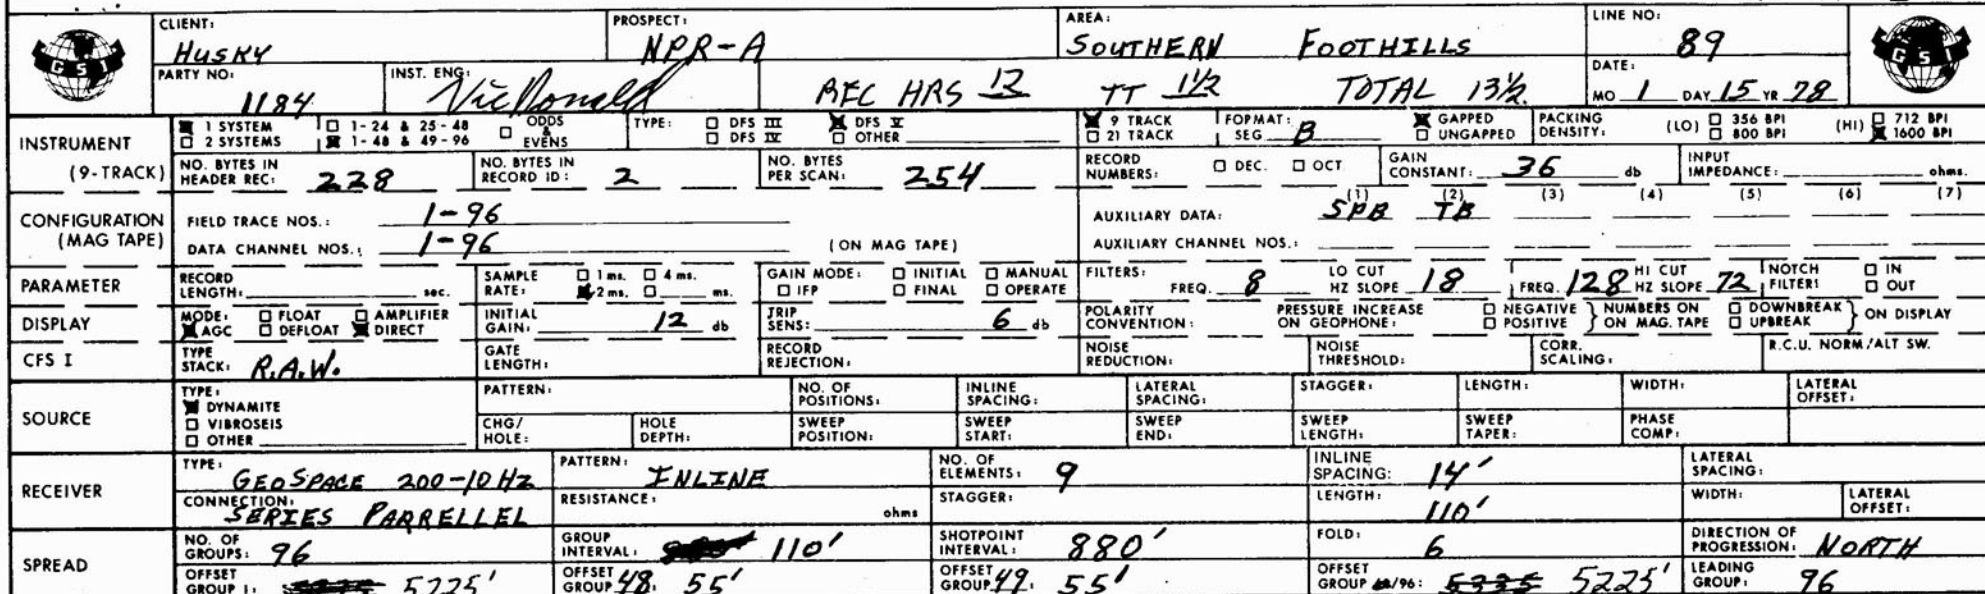 CLIENT: HUSKY PROSPECT: NPR-A AREA: SOUTHERN FOOTHILLS LINE NO: 89
GSI GSI
PARTY NO: 1184 INST. ENG: Vic Donald REC HRS 12 TT 1½ TOTAL 13½ DATE: MO 1 DAY 15 YR 78
INSTRUMENT (9-TRACK)
1 SYSTEM 1-24 & 25-48 ODDS & EVENS TYPE: DFS III DFS V 9 TRACK FORMAT: SEG B GAPPED PACKING DENSITY: (LO) 356 BPI (HI) 712 BPI
2 SYSTEMS 1-48 & 49-96 DFS IV OTHER 21 TRACK UNGAPPED 800 BPI 1600 BPI
NO. BYTES IN HEADER REC: 228 NO. BYTES IN RECORD ID: 2 NO. BYTES PER SCAN: 254 RECORD NUMBERS: DEC. OCT GAIN CONSTANT: 36 db INPUT IMPEDANCE: ohms.
CONFIGURATION (MAG TAPE)
FIELD TRACE NOS.: 1-96 AUXILIARY DATA: (1) SPB (2) TB (3) (4) (5) (6) (7)
DATA CHANNEL NOS.: 1-96 (ON MAG TAPE) AUXILIARY CHANNEL NOS.:
PARAMETER RECORD LENGTH: sec. SAMPLE RATE: 1 ms. 4 ms. 2 ms. ms. GAIN MODE: INITIAL MANUAL IFP FINAL OPERATE FILTERS: FREQ. 8 LO CUT HZ SLOPE 18 FREQ. 128 HI CUT HZ SLOPE 72 NOTCH FILTER: IN OUT
DISPLAY MODE: FLOAT AMPLIFIER AGC DEFLOAT DIRECT INITIAL GAIN: 12 db TRIP SENS: 6 db POLARITY CONVENTION: PRESSURE INCREASE ON GEOPHONE: NEGATIVE POSITIVE NUMBERS ON ON MAG. TAPE DOWNBREAK UPBREAK ON DISPLAY
CFS I TYPE STACK: R.A.W. GATE LENGTH: RECORD REJECTION: NOISE REDUCTION: NOISE THRESHOLD: CORR. SCALING: R.C.U. NORM/ALT SW.
SOURCE
TYPE: DYNAMITE VIBROSEIS OTHER PATTERN: NO. OF POSITIONS: INLINE SPACING: LATERAL SPACING: STAGGER: LENGTH: WIDTH: LATERAL OFFSET:
CHG/HOLE: HOLE DEPTH: SWEEP POSITION: SWEEP START: SWEEP END: SWEEP LENGTH: SWEEP TAPER: PHASE COMP:
RECEIVER
TYPE: GEOSPACE 200-10 HZ PATTERN: INLINE NO. OF ELEMENTS: 9 INLINE SPACING: 14' LATERAL SPACING:
CONNECTION: SERIES PARRELLEL RESISTANCE: ohms STAGGER: LENGTH: 110' WIDTH: LATERAL OFFSET:
SPREAD
NO. OF GROUPS: 96 GROUP INTERVAL: 110' SHOTPOINT INTERVAL: 880' FOLD: 6 DIRECTION OF PROGRESSION: NORTH
OFFSET GROUP 1: 5225' OFFSET GROUP 48: 55' OFFSET GROUP 49: 55' OFFSET GROUP /96: 5335 5225' LEADING GROUP: 96